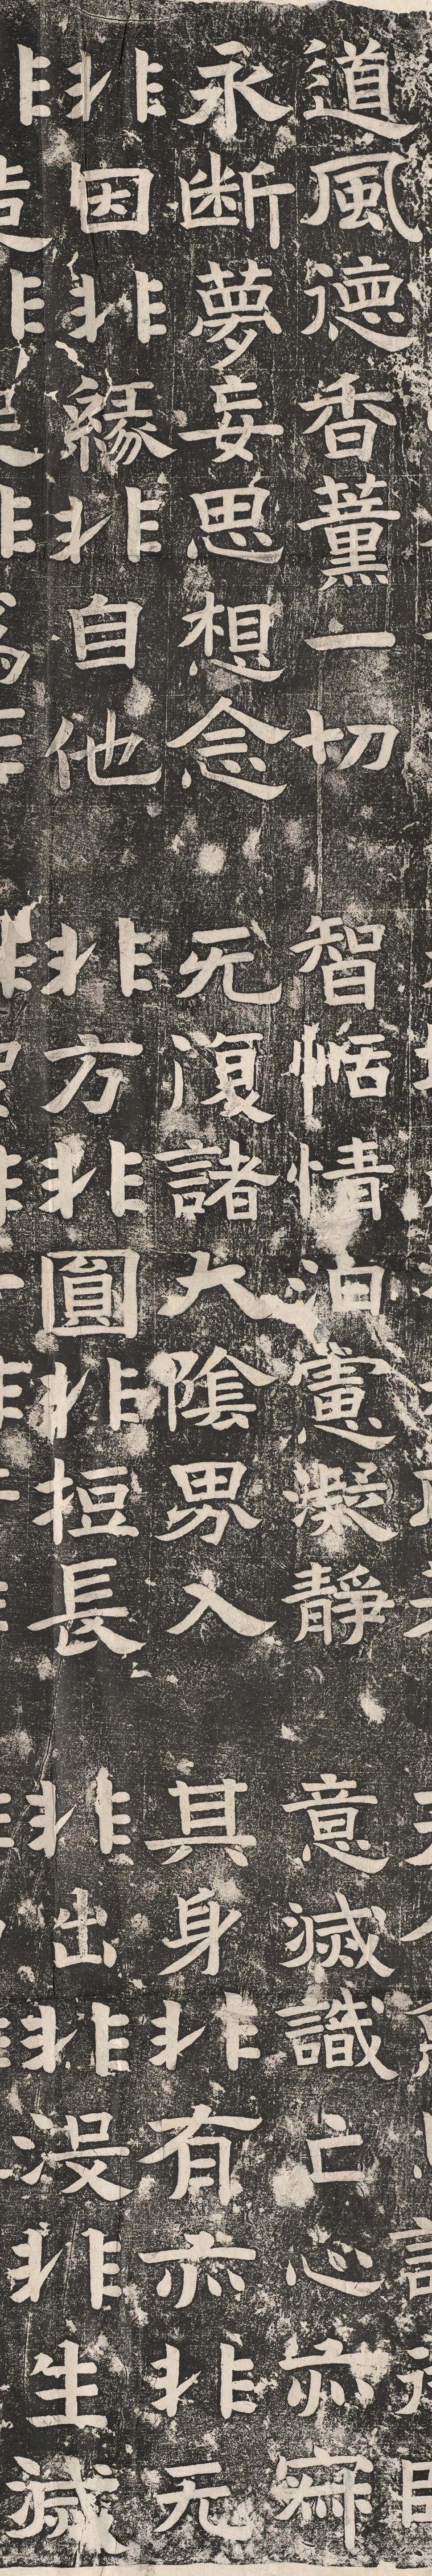 道風德香薰一切 智恬情泊慮凝静 意滅識亡心亦寂
永断夢妄思想念 无復諸大陰界入 其身非有亦非无
非因非緣非自他 非方非圓非短長 非出非没非生滅